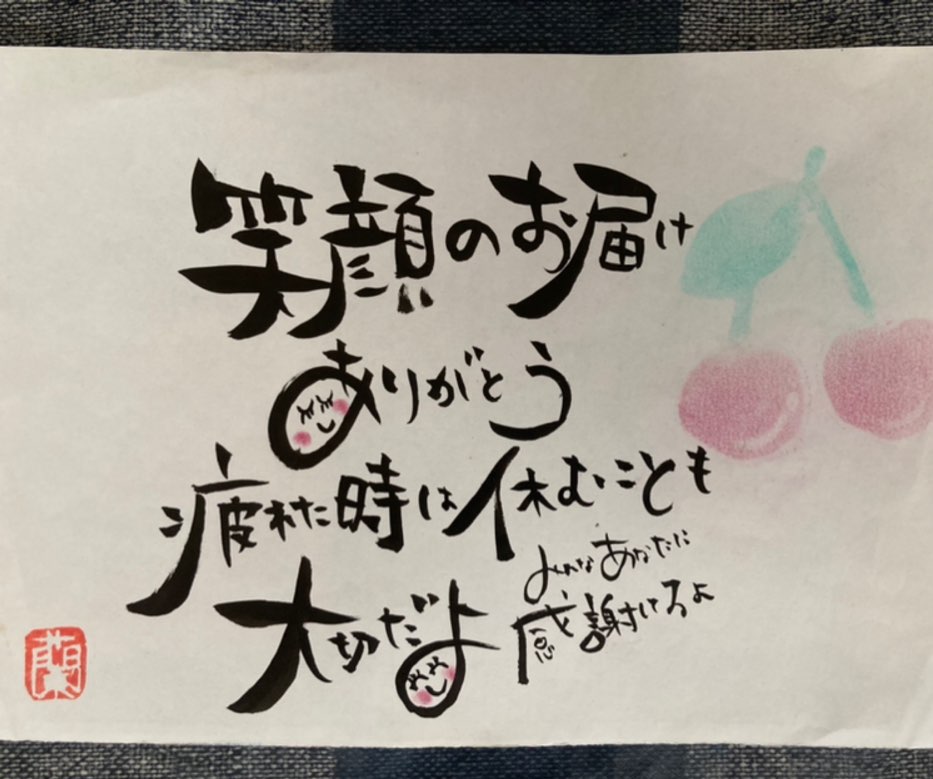 笑顔のお届け
ありがとう
疲れた時は休むことも
大切だよ
みんなあなたに
感謝してるよ
蘭